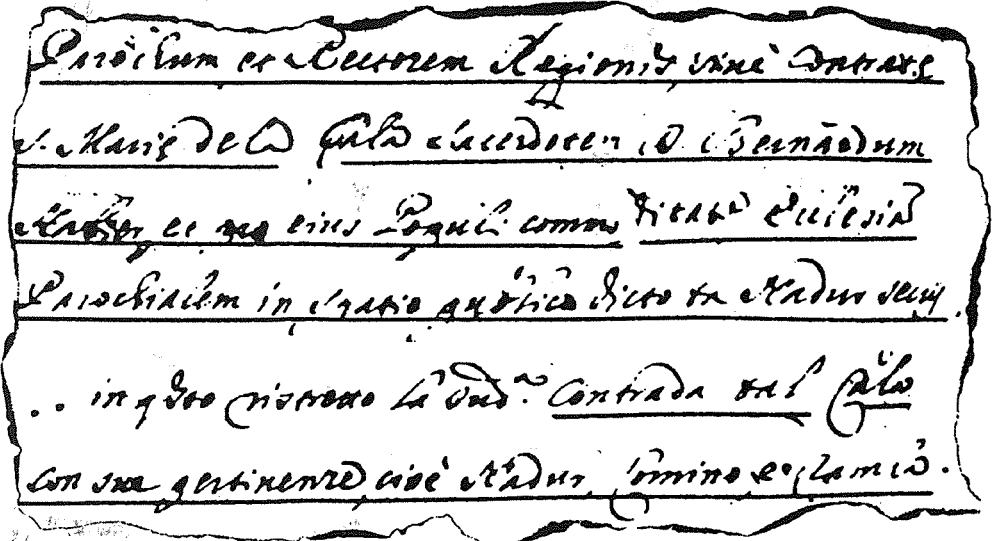 Parochum et Rectorem Regionis, sive Contratæ
S. Mariæ de la Cala Sacerdotem D. Bernardum
et pro eius Populi commoditate Ecclesia
Parochialem in spatio publico dicto ta Nadur
.. in qsto ristretto la sud.ª Contrada tal Cala
con sue pertinenze, cioè Nadur, Comino, e